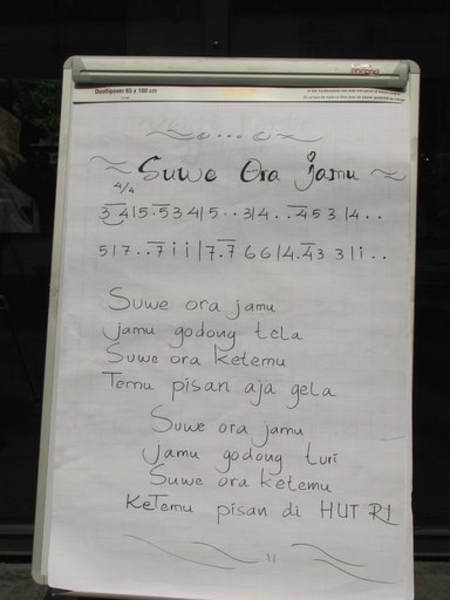 Duoflipover 65 x 100 cm
Suwe Ora jamu
4/4
3 4|5.5 3 4|5..3|4...4 5 3|4..
5|7..7 i i|7.7 6 6|4.4 3 3|i..
Suwe ora jamu
jamu godong tela
Suwe ora ketemu
Temu pisan aja gela
Suwe ora jamu
jamu godong turi
Suwe ora ketemu
KeTemu pisan di HUT RI